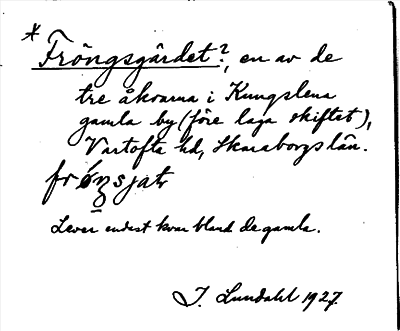 * Fröngsgärdet?, en av de
tre åkrarna i Kungslena
gamla by (före laga skiftet),
Vartofta hd, Skaraborgs län.
Lever endast kvar bland de gamla.
J. Lundahl 1927.